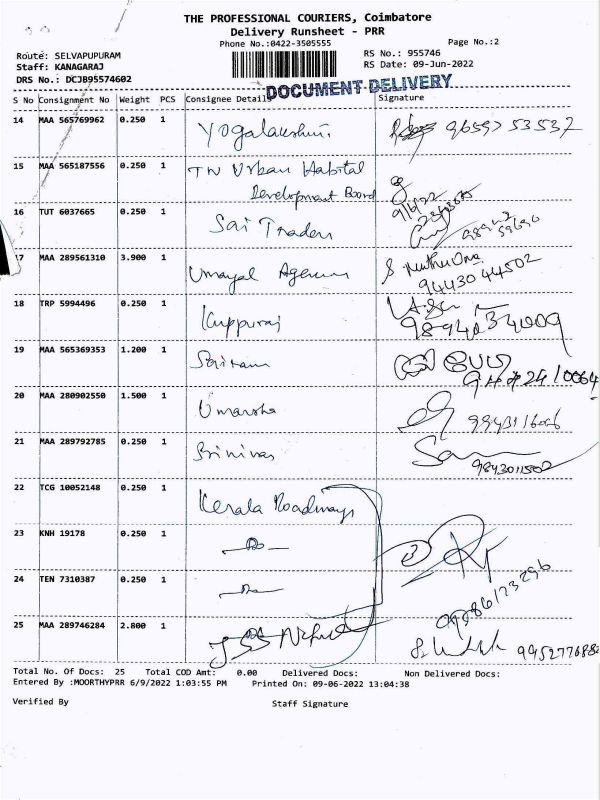 THE PROFESSIONAL COURIERS, Coimbatore
Delivery Runsheet - PRR
Phone No.:0422-3505555
Page No.:2
Route: SELVAPUPURAM
Staff: KANAGARAJ
DRS No.: DCJB95574602
RS No.: 955746
RS Date: 09-Jun-2022
DOCUMENT DELIVERY
S No Consignment No Weight PCS Consignee Details Signature
14 MAA 565769962 0.250 1 Yogalakshmi 9659753537
15 MAA 565187556 0.250 1 TN Urban Habital
Development Board 9/6/22
16 TUT 6037665 0.250 1 Sai Traders
17 MAA 289561310 3.900 1 Umayal Agencies
9443044502
18 TRP 5994496 0.250 1 Kuppuraj
9894034009
19 MAA 565369353 1.200 1 Sairam
20 MAA 280902550 1.500 1 Umarsha
21 MAA 289792785 0.250 1 Srinivas
9843011502
22 TCG 10052148 0.250 1 Kerala Roadways
23 KNH 19178 0.250 1 -Do-
24 TEN 7310387 0.250 1 -Do-
25 MAA 289746284 2.800 1 JSS
9952776882
Total No. Of Docs: 25 Total COD Amt: 0.00 Delivered Docs: Non Delivered Docs:
Entered By :MOORTHYPRR 6/9/2022 1:03:55 PM Printed On: 09-06-2022 13:04:38
Verified By Staff Signature